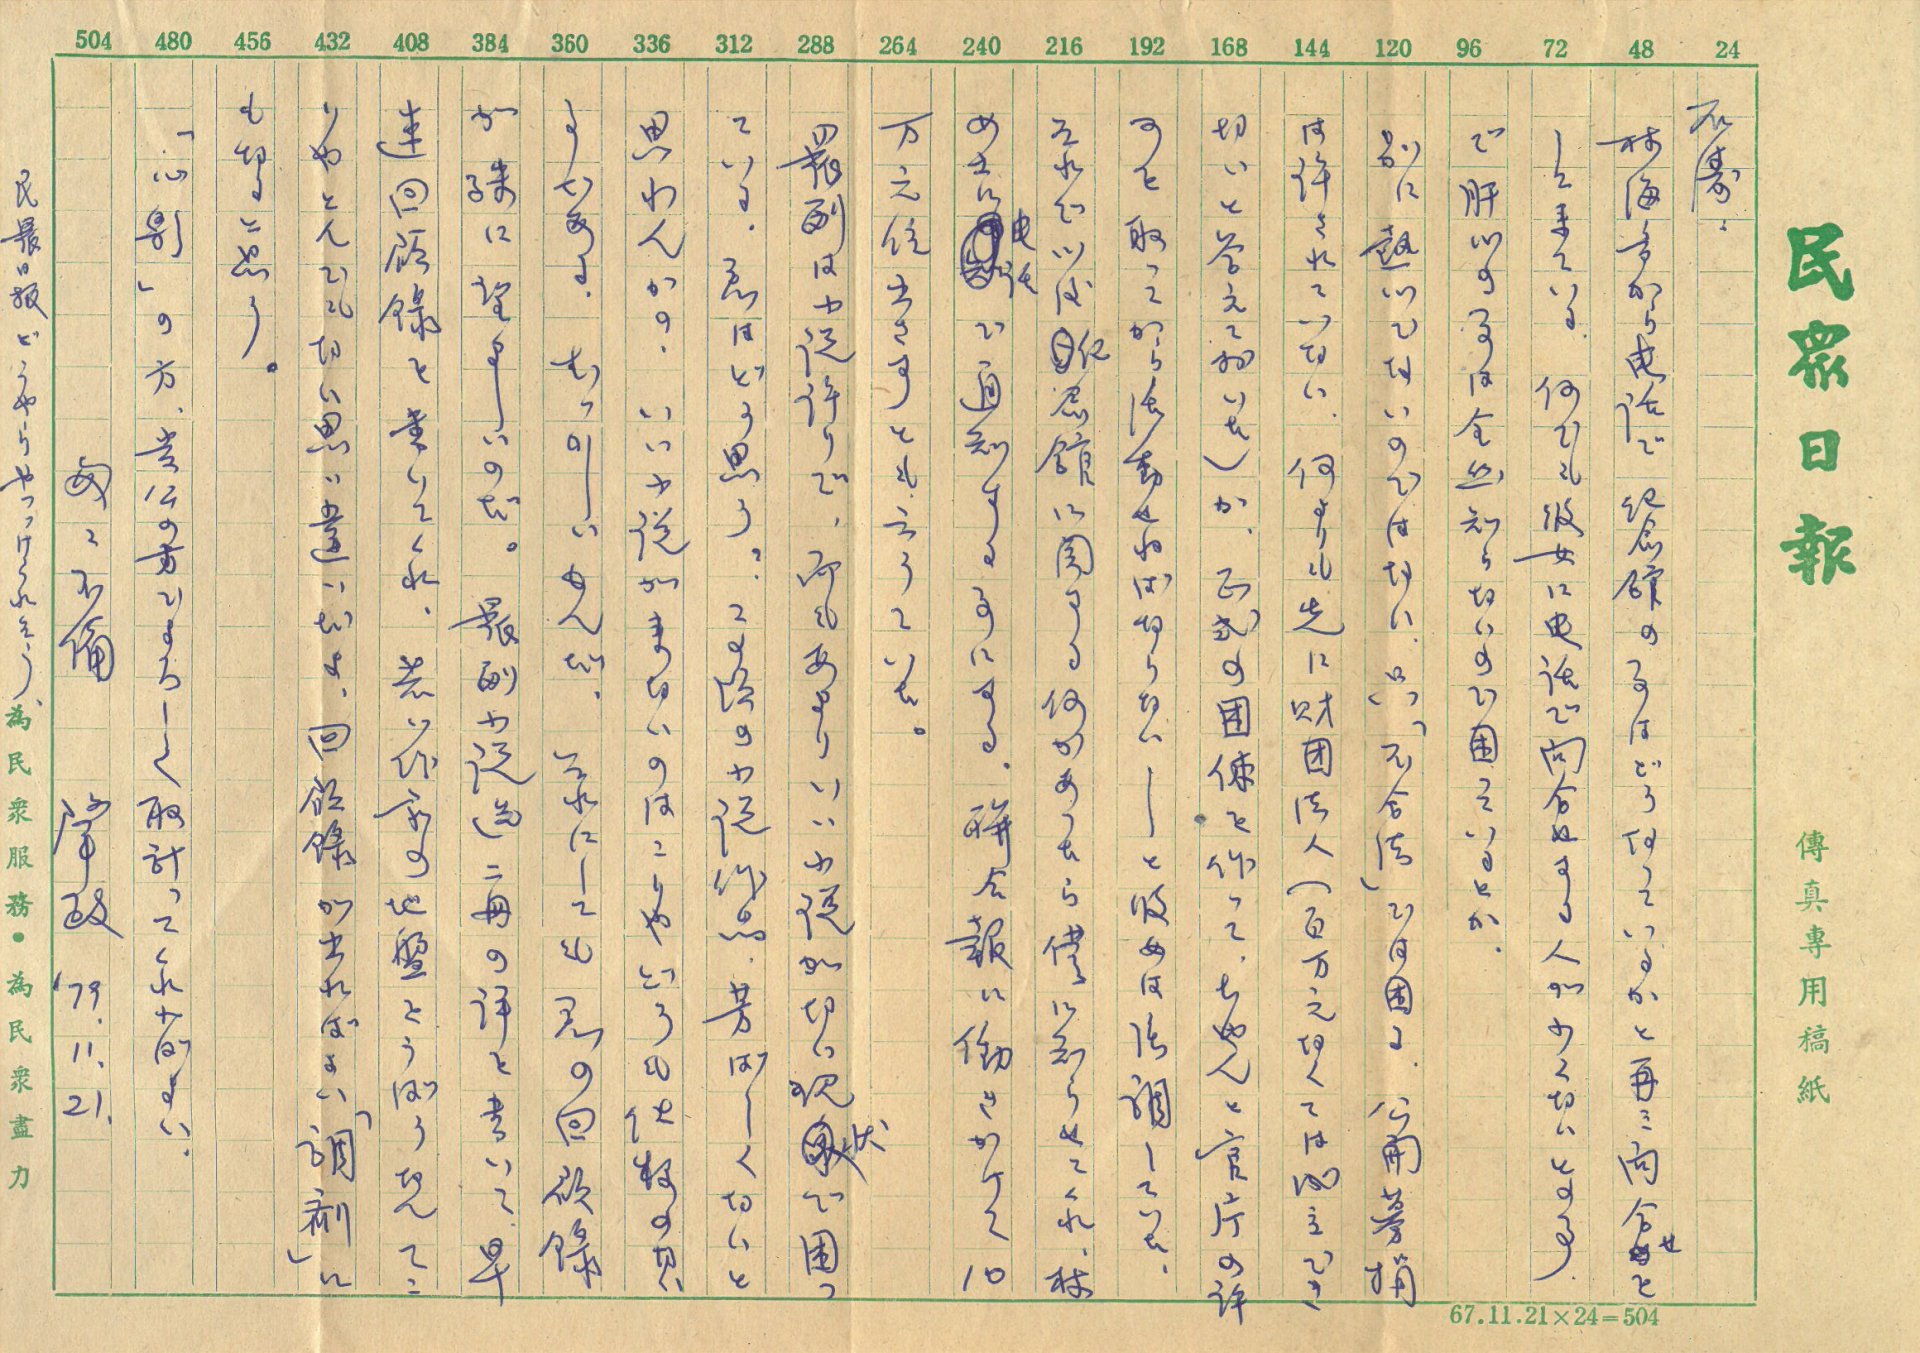 民眾日報
傳真專用稿紙
24 48 72 96 120 144 168 192 216 240 264 288 312 336 360 384 408 432 456 480 504
石濤：
林海音から电话で紀念館の事はどうなっているかと再三向合せを
して来ている。何でも彼女に电话で向合せする人が少くないとの事。
で肝心の事は全然知らないので困っているとか。
別に熱心でないのではない、只「不合法」では困る。公開募捐
は許されていない、何より先に財団法人（百万元なくては成立でき
ないと答えておいた）か、正式の団体を作って、ちゃんと官庁の許
可を取ってから活動せねばならない——と彼女は強調していた。
それで以後紀念館に関する何かあったら僕に知らせてくれ、林
女士に电话で通知する事にする。聯合報に働きかけて10
万元位出させるとも言っていた。
農副は小説許りで、而もあまりいい小説がない現状で困っ
ている。君はどう思う？こう云う小説作品、芳ばしくないと
思わんかの。いい小説が来ないのはこちらばかりも他報の
よりもある。むつかしいもんだ。それにしても君の回顧錄
が殊に望ましいのだ。農副小説選二冊の評を書いて、早
速回顧錄を書いてくれ、若い作家の地盤をうばうなんてこ
りやとんでもない思い違いだよ。回顧錄が出ればよい「調剤」に
もなると思う。
「心影」の方、貴公の方でよろしく取計ってくれればよい。
匆々不備
肇政 '79.11.21.
民農日報どうやらやっつけられそう、
為民眾服務・為民眾盡力
67.11.21×24=504